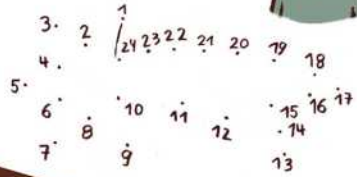 1
3. 2
24 23 22 21 20 19
4. 18
5.
6 10 11 12 15 16 17
8 14
7 9 13